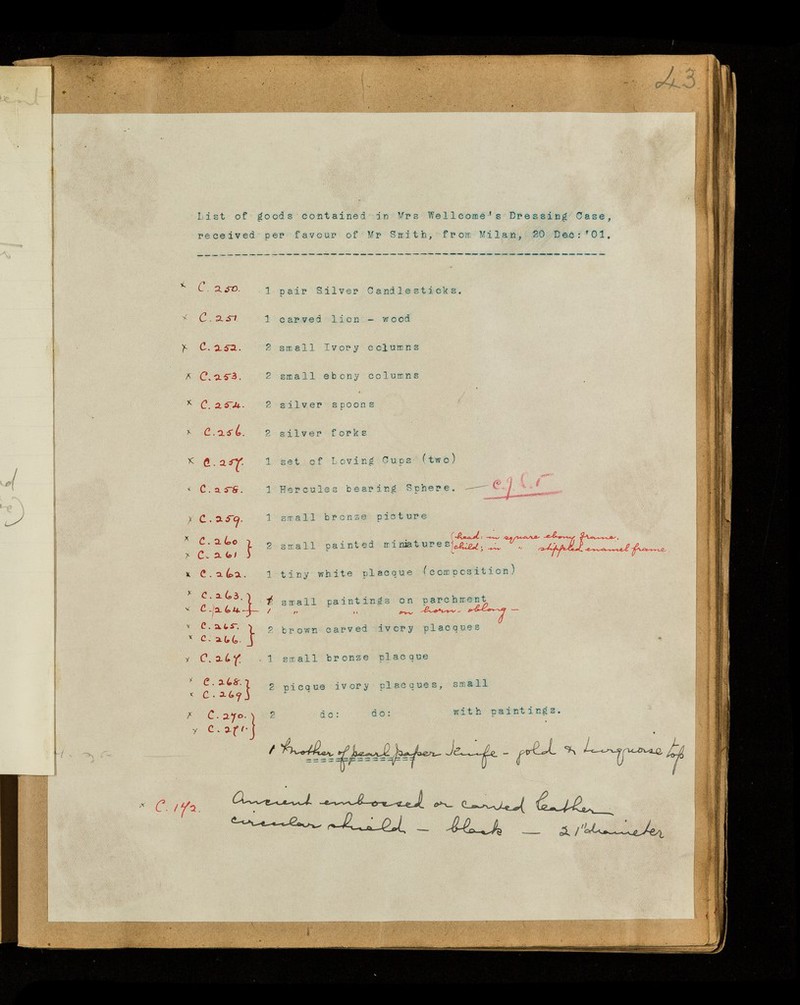 43
List of goods contained in Mrs Wellcome's Dressing Case,
received per favour of Mr Smith, from Milan, 20 Dec:'01.
x C. 250. 1 pair Silver Candlesticks.
x C. 251 1 carved lion - wood
x C. 252. 2 small Ivory columns
x C. 253. 2 small ebony columns
x C. 254. 2 silver spoons
x C. 256. 2 silver forks
x C. 257. 1 set of Loving Cups (two)
x C. 258. 1 Hercules bearing Sphere. —
x C. 259. 1 small bronze picture
x C. 260 } 2 small painted miniatures (head. in square ebony frame.
x C. 261 } child; in " stippled enamel frame
x C. 262. 1 tiny white placque (composition)
x C. 263. } 1 small paintings on parchment
x C. 264. } 1 " " on horn. oblong —
x C. 265. } 2 brown carved ivory placques
x C. 266. }
x C. 267. 1 small bronze placque
x C. 268. } 2 picque ivory placques, small
x C. 269 }
x C. 270. } 2 do: do: with paintings.
x C. 271. }
1 Mother of pearl paper knife - gold & turquoise top
x C. 172. Ancient embossed or carved leather
circular shield — black — 21" diameter